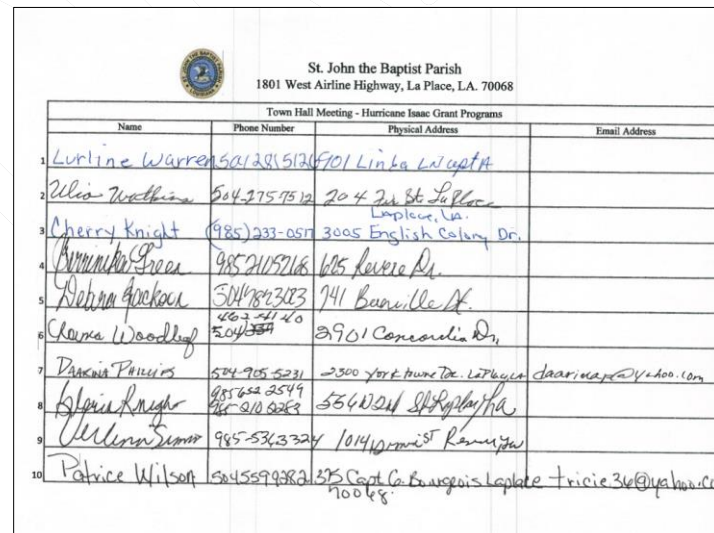 St. John the Baptist Parish
1801 West Airline Highway, La Place, LA. 70068
Town Hall Meeting - Hurricane Isaac Grant Programs
Name Phone Number Physical Address Email Address
1 Lurline Warren 5012815126 5101 Linka LN apt A
2 Watkins 504-275-7512 204 Fir St. LaPlace
Laplace, La.
3 Cherry Knight (985)233-0517 3005 English Colony Dr.
4 Green 9852105268 625 Revere Dr.
5 Debra Jackson 5047823023 741 St.
462-4140
6 Woodleaf 504 2901 Concordia Dr.
7 DAARINA PHILLIPS 504-905-5231 2300 Yorktowne Dr. LaPlace, LA daarinap@yahoo.com
985 652 2549
8 Gloria Knight 985-210 0283 564 St Laplace, La
9 985-5363324 1014 St
10 Patrice Wilson 5045599382 375 Capt G. Bourgeois Laplace tricie.36@yahoo.co
70068.